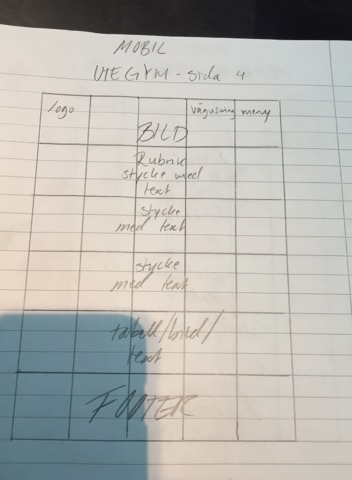 MOBIL
UTEGYM - sida 4
logo vägvisning meny
BILD
Rubrik
stycke med
text
stycke
med text
stycke
med text
tabell/bild/
text
FOOTER